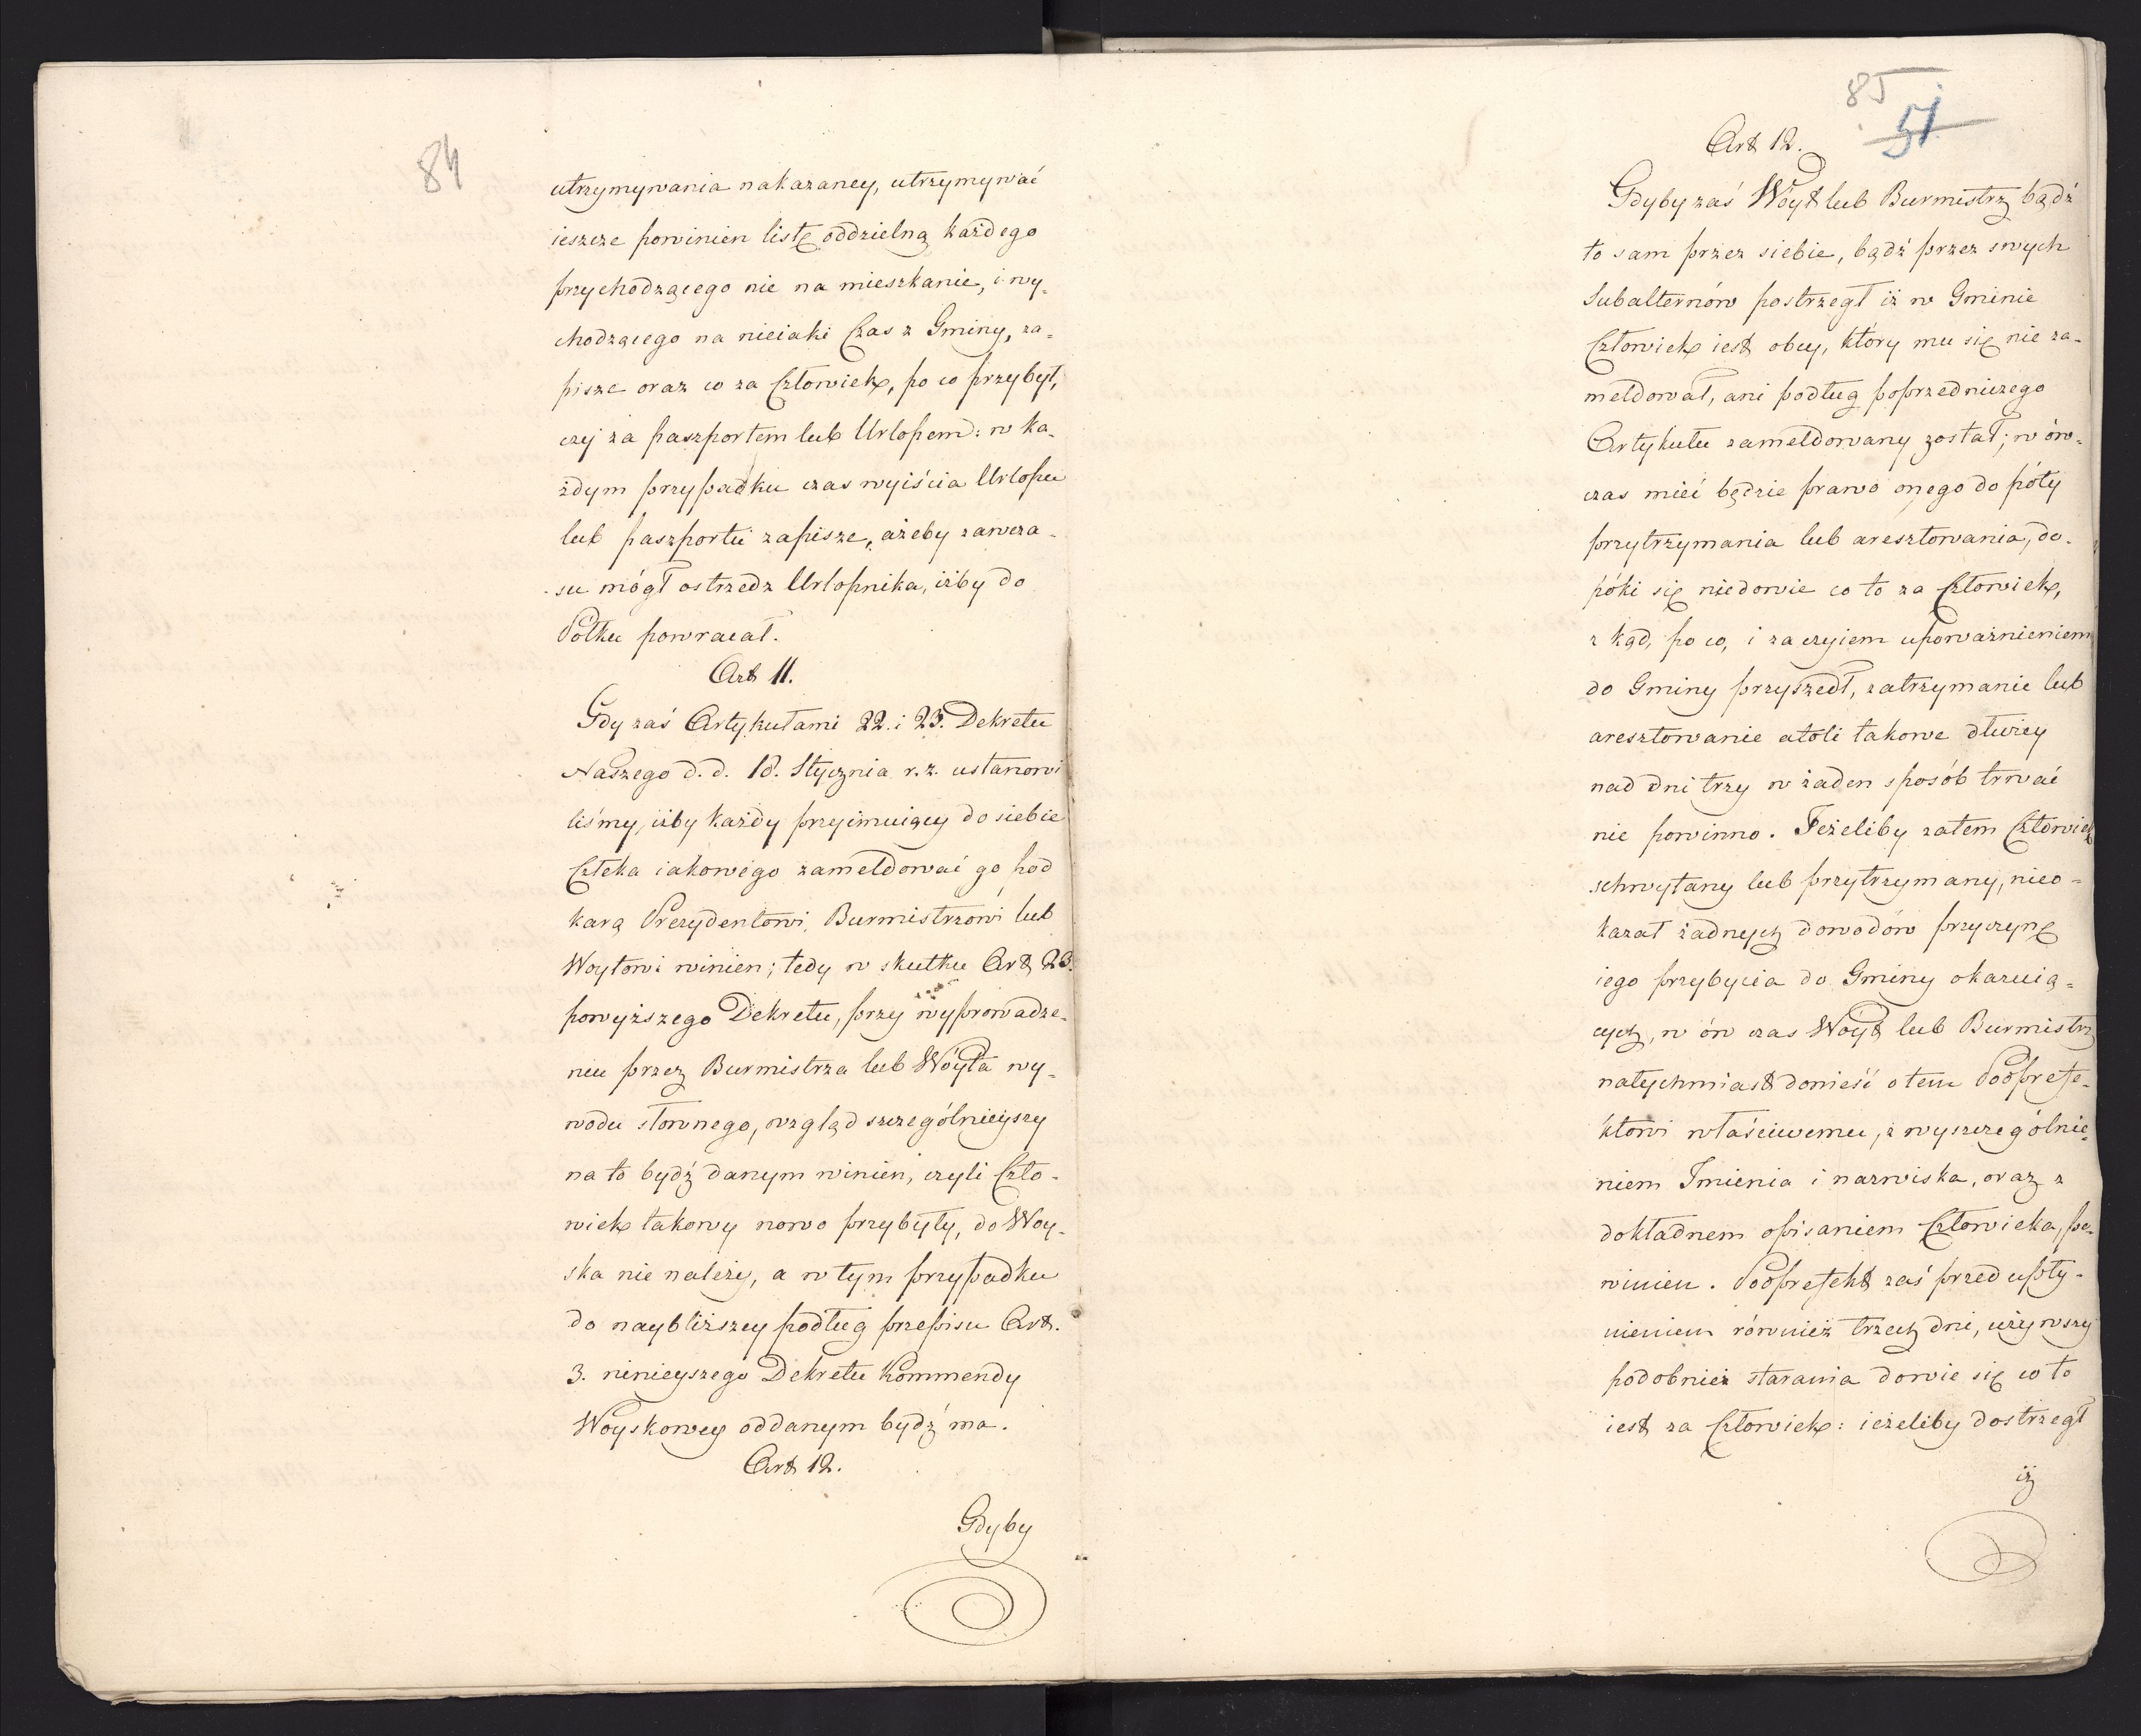 84
utrzymywania nakazaney, utrzymywać
ieszcze powinien listę oddzielną każdego
przychodzącego nie na mieszkanie, i wy-
chodzącego na nieiaki Czas z Gminy, za-
pisze oraz co za Człowiek, po co przybył,
czy za paszportem lub Urlopem: w ka-
żdym przypadku czas wyiścia Urlopu
lub paszportu zapisze, ażeby zawcza-
su mógł ostrzedz Urlopnika, iżby do
Półku powracał.
Art 11.
Gdy zaś Artykułami 22. i 23. Dekretu
Naszego d. d. 18. Stycznia r. z. ustanowi
liśmy, iżby każdy przyimuiący do siebie
Człeka iakowego zameldować go pod
karą Prezydentowi, Burmistrzowi lub
Woytowi winien; tedy w skutku Art 23.
powyższego Dekretu, przy wyprowadze-
niu przez Burmistrza lub Wóyta wy-
wodu słownego, wzgląd szczególnieyszy
na to bydź danym winien, czyli Czło-
wiek takowy nowo przybyły, do Woy-
ska nie należy, a w tym przypadku
do naybliższey podług przepisu Art.
3. ninieyszego Dekretu Kommendy
Woyskowey oddanym bydź ma.
Art 12.
Gdyby
85
51
Art 12.
Gdyby zaś Wóyt lub Burmistrz bądź
to sam przez siebie, bądź przez swych
Subalternów postrzegł iż w Gminie
Człowiek iest obcy, który mu się nie za-
meldował, ani podług poprzedniczego
Artykułu zameldowany został; w ów-
czas mieć będzie prawo onego do póty
przytrzymania lub aresztowania, do-
póki się niedowie co to za Człowiek,
z kąd, po co, i za czyiem upoważnieniem
do Gminy przyszedł, zatrzymanie lub
aresztowanie atoli takowe dłużey
nad dni trzy w żaden sposób trwać
nie powinno. Jeżeliby zatem Człowiek
schwytany lub przytrzymany, nieo-
kazał żadnych dowodów przyczynę
iego przybycia do Gminy okazuią-
cych, w ów czas Wóyt lub Burmistrz
natychmiast donieść o tem Podprefe-
ktowi właściwemu, z wyszczególnie-
niem Imienia i nazwiska, oraz z
dokładnem opisaniem Człowieka, po-
winien. Podprefekt zaś przed upły-
nieniem również trzech dni, używszy
podobnież starania dowie się co to
iest za Człowiek: ieżeliby dostrzegł
iż